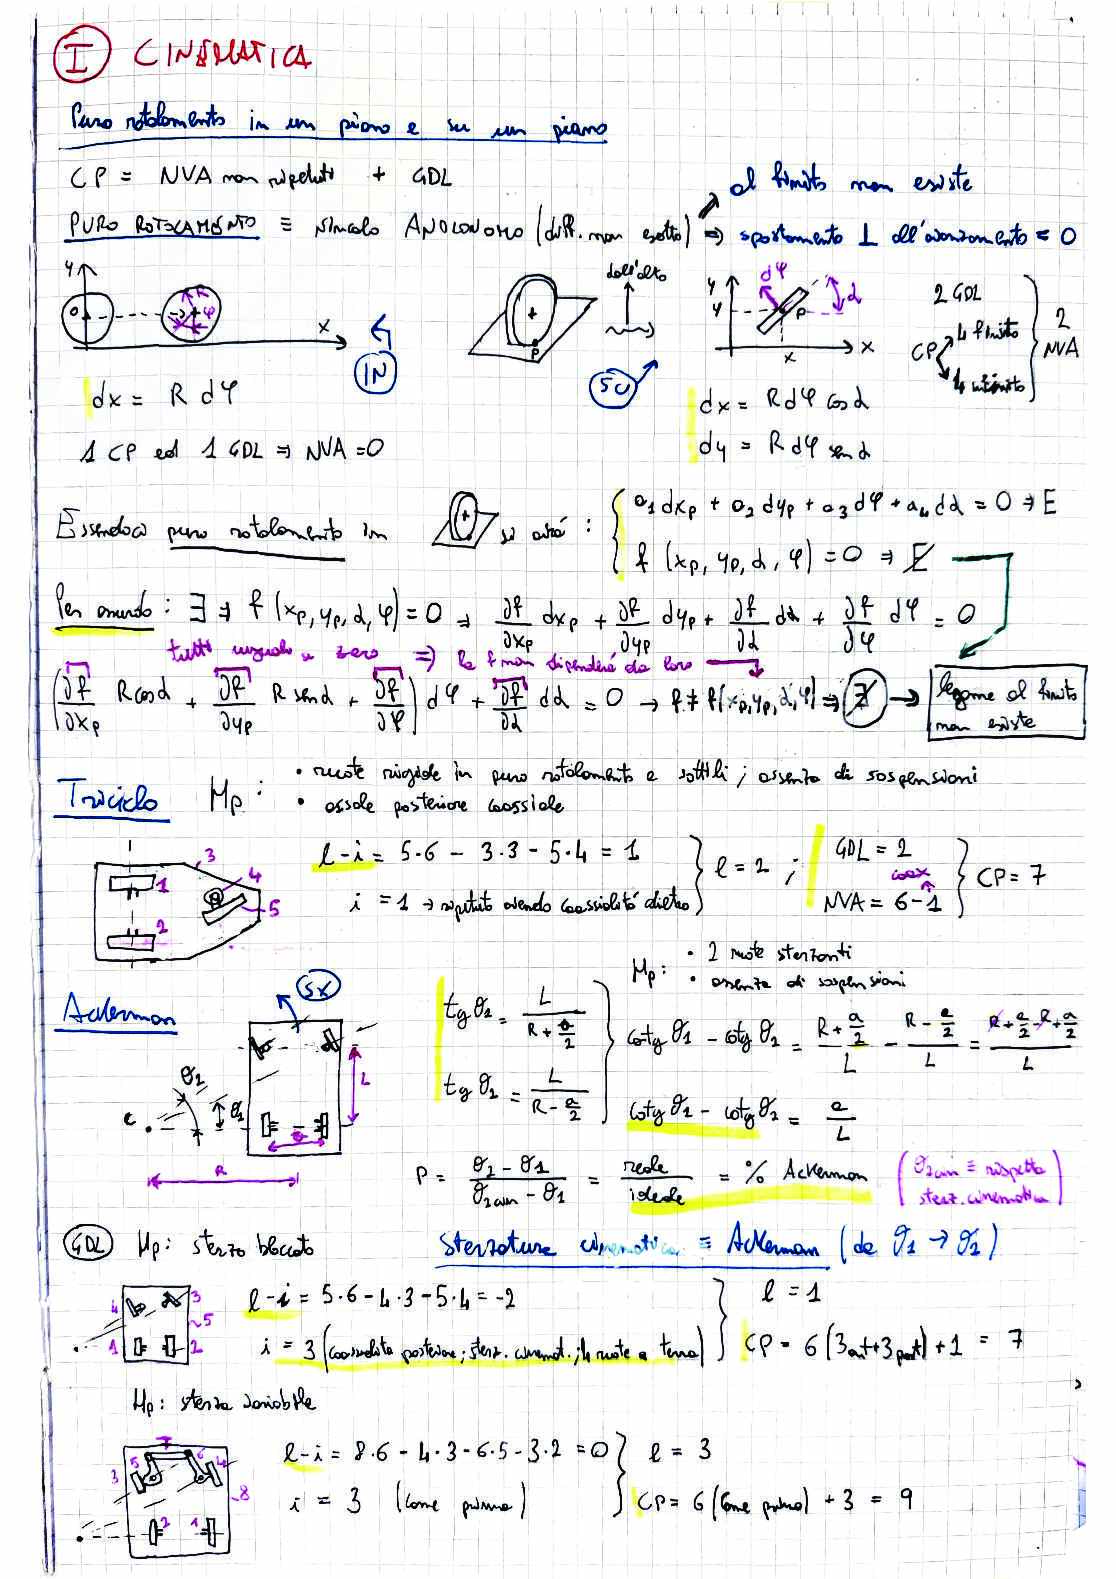 I CINEMATICA
Puro rotolamento in un piano e su un piano
CP = NVA non ripetuti + GDL
al finito non esiste
PURO ROTOLAMENTO ≡ vincolo ANOLONOMO (diff. non esatto) ⇒ spostamento ⊥ all'avanzamento = 0
y
O
φ
x
IN
P
dall'alto
SU
y
y
dφ
α
P
x
x
2 GDL
CP
4 finito
4 infinito
2 NVA
dx = R dφ
dx = R dφ cos α
1 CP ed 1 GDL ⇒ NVA = 0
dy = R dφ sen α
Essendoci puro rotolamento in
si avrà :
a₁ dxp + a₂ dyp + a₃ dφ + a₄ dα = 0 ⇒ E
f (xp, yp, α, φ) = 0 ⇒ ∄
Per assurdo : ∃ ⇒ f (xp, yp, α, φ) = 0 ⇒ ∂f/∂xp dxp + ∂f/∂yp dyp + ∂f/∂α dα + ∂f/∂φ dφ = 0
tutti uguali a zero ⇒ la f non dipenderà da loro
(∂f/∂xp R cos α + ∂f/∂yp R sen α + ∂f/∂φ) dφ + ∂f/∂α dα = 0 → f ≠ f(xp, yp, α, φ) ⇒ ∄ → legame al finito non esiste
Triciclo Hp :
• ruote rigide in puro rotolamento e sottili ; assenza di sospensioni
• assale posteriore coassiale
1
2
3
4
5
l - i = 5·6 - 3·3 - 5·4 = 1
i = 1 → ripetuto avendo coassialità dietro
l = 2 ;
GDL = 2
coax
NVA = 6 - 1
CP = 7
Ackerman
SX
Hp :
• 2 ruote sterzanti
• assenza di sospensioni
C
θ₂
θ₁
L
a
R
tg θ₁ = L / (R + a/2)
tg θ₂ = L / (R - a/2)
cotg θ₁ - cotg θ₂ = (R + a/2)/L - (R - a/2)/L = (R + a/2 - R + a/2)/L
cotg θ₁ - cotg θ₂ = a/L
P = (θ₂ - θ₁)/(θ₂cin - θ₁) = reale/ideale = % Ackerman
(θ₂cin ≡ rispetta sterz. cinematica)
GDL Hp : sterzo bloccato
Sterzatura cinematica ≡ Ackerman (da θ₁ → θ₂)
1
2
3
4
5
l - i = 5·6 - 4·3 - 5·4 = -2
i = 3 (coassialità posteriore ; sterz. cinemat. ; 4 ruote a terra)
l = 1
CP = 6 (3ant + 3post) + 1 = 7
Hp : sterzo variabile
1
2
3
4
5
6
7
8
l - i = 8·6 - 4·3 - 6·5 - 3·2 = 0
i = 3 (come prima)
l = 3
CP = 6 (come prima) + 3 = 9